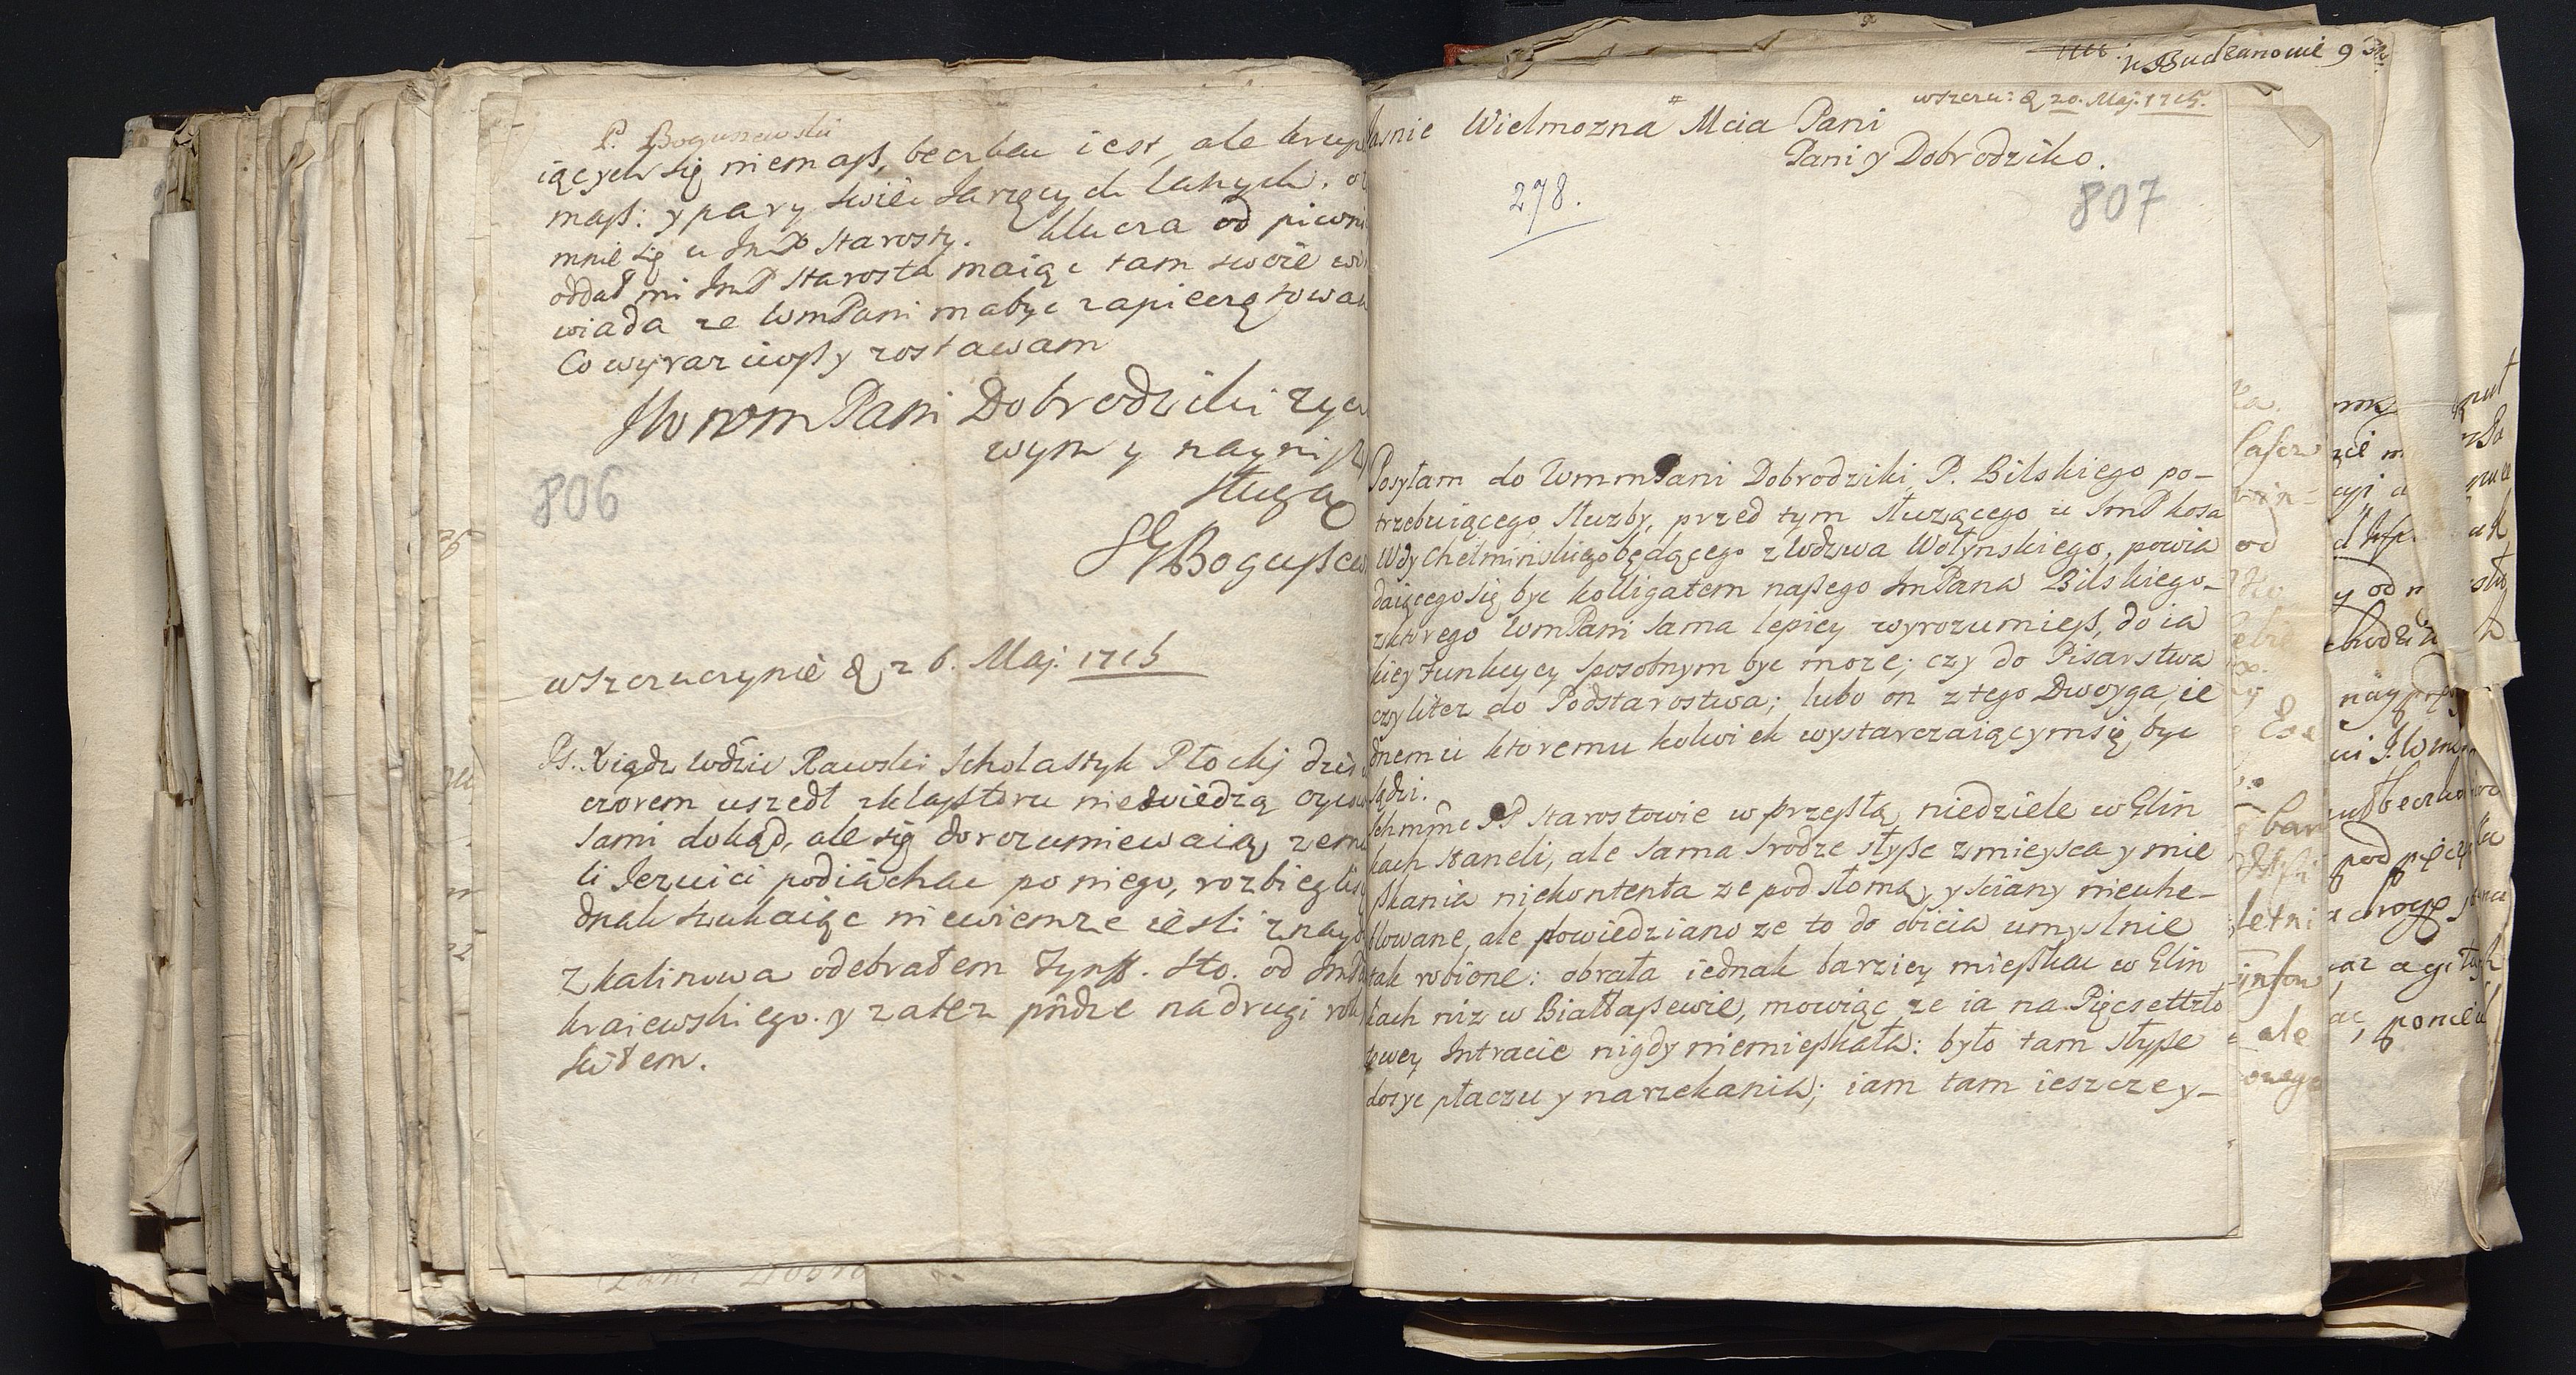 P. Boguszewski
iących się niemasz, beczka iest, ale krup
masz: y pary swiec Jarzących lanych.
mnie się u JmP Starosty. klucza od piwni
oddał mi JmP Starosta maiąc tam swoie
wiada ze WmPani mabyc zapieczętowan
Co wyraziwszy zostawam
JWWmPani Dobrodziki zycz
wym y nayniszy
sługą
SGBogusze
806
wSzczuczynie d 26. Maj. 1715
Ps. Xiądz Rawski Scholastyk Płocki
czorem uszedł zklasztoru niewiedzą oycow
sami dokąd, ale się dorozumiewaią zemu
li Jezuici podiachac poniego, rozbiegli się
dnak szukaiąc niewiemze iesli znayd
Zkalinowa odebrałem Tynff. sto. od JmP
kraiewskiego. y zatez na drugi rok
.
u Budzanowie 9
wSzczu: d 20. Maj. 1715.
Jasnie Wielmozna Mcia Pani
Pani y Dobrodziko.
278.
807
Posyłam do WmmPani Dobrodziki, P. Bilskiego po-
trzebuiącego słuzby, przed tym słuzącego u JmP kosa
Wdy Chełminskiego będącego zWdzwa Wołynskiego, powia
daiącegosię byc kolligatem naszego JmPana Bilskiego-
zktorego WmPani sama lepiey wyrozumiesz, do ia
kiey Funkcyey sposobnym byc moze; czy do Pisarstwa
czyliter do Podstarostwa; lubo on ztego Dwoyga, ie
dnemu ktoremu kolwiek wystarczaiącymsię byc
sądzi.
Ichmmc PP Starostowie wprzeszłą niedziele w Glin
kach staneli, ale sama srodze słysze zmieysca y mie
szkania niekontenta ze pod słomą, y sciany nieuhe-
blowane, ale powiedziano ze to do obicia umyslnie
tak robione: obrała iednak barziey mieszkac w Glin
kach niz w Białłaszewie, mowiąc ze ia na Pięcsetzło
towey Intracie nigdy niemieszkała: było tam słysze
dosyc płaczu y narzekania; iam tam ieszcze y-